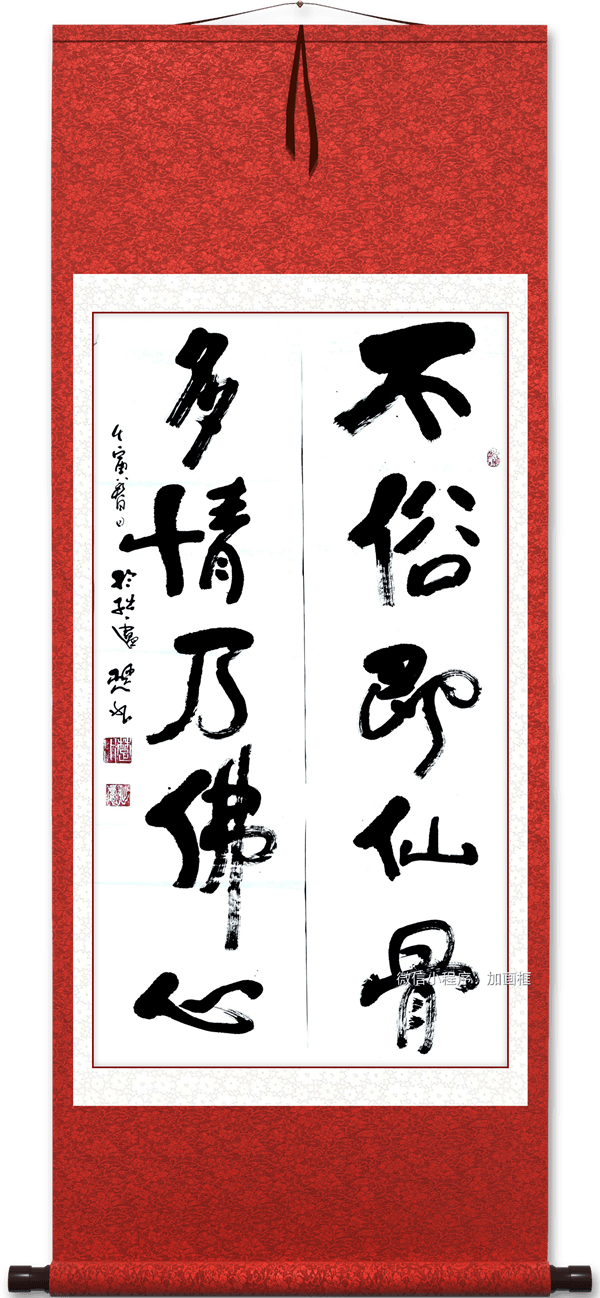 不俗即仙骨
多情乃佛心
壬寅春日
微信小程序：加画框